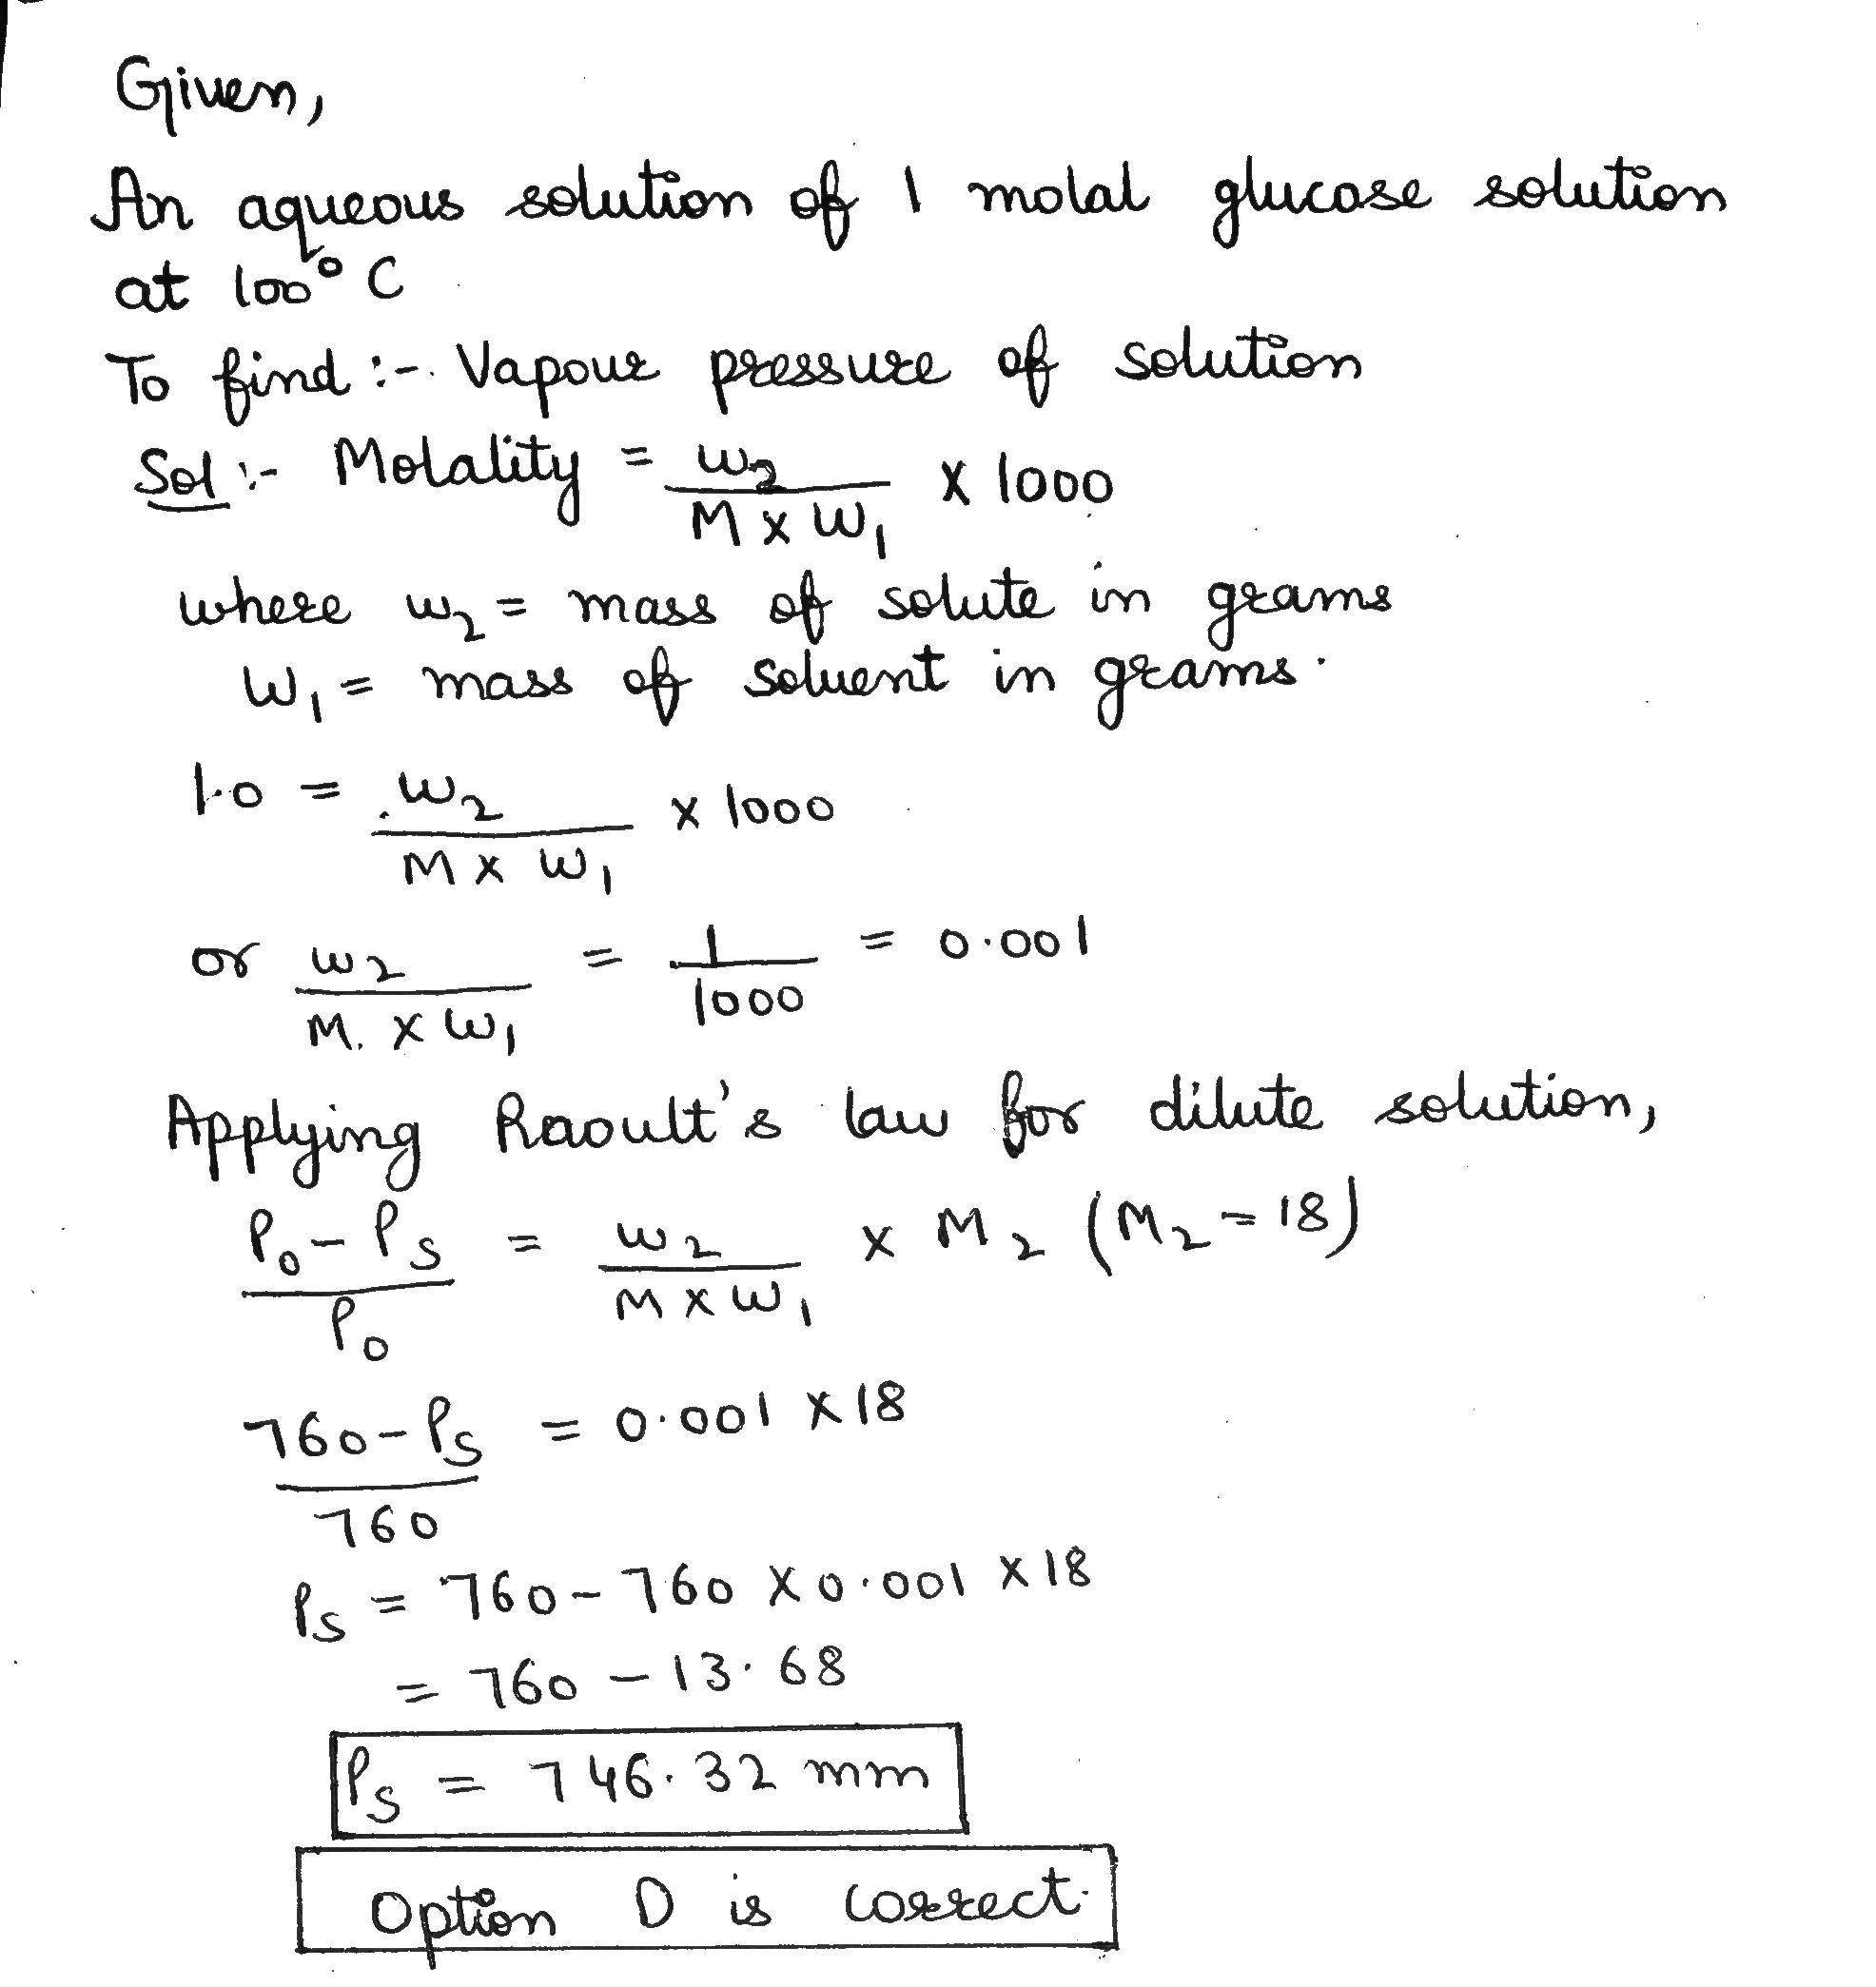 Given,
An aqueous solution of 1 molal glucose solution
at 100° C
To find :- Vapour pressure of solution
Sol :- Molality = w₂ / M × W₁ × 1000
where w₂ = mass of solute in grams
W₁ = mass of solvent in grams.
1.0 = w₂ / M × W₁ × 1000
or w₂ / M. × W₁ = 1 / 1000 = 0.001
Applying Raoult's law for dilute solution,
P₀ - Pₛ / P₀ = w₂ / M × W₁ × M₂ (M₂ = 18)
760 - Pₛ / 760 = 0.001 × 18
Pₛ = 760 - 760 × 0.001 × 18
= 760 - 13.68
Pₛ = 746.32 mm
Option D is correct.